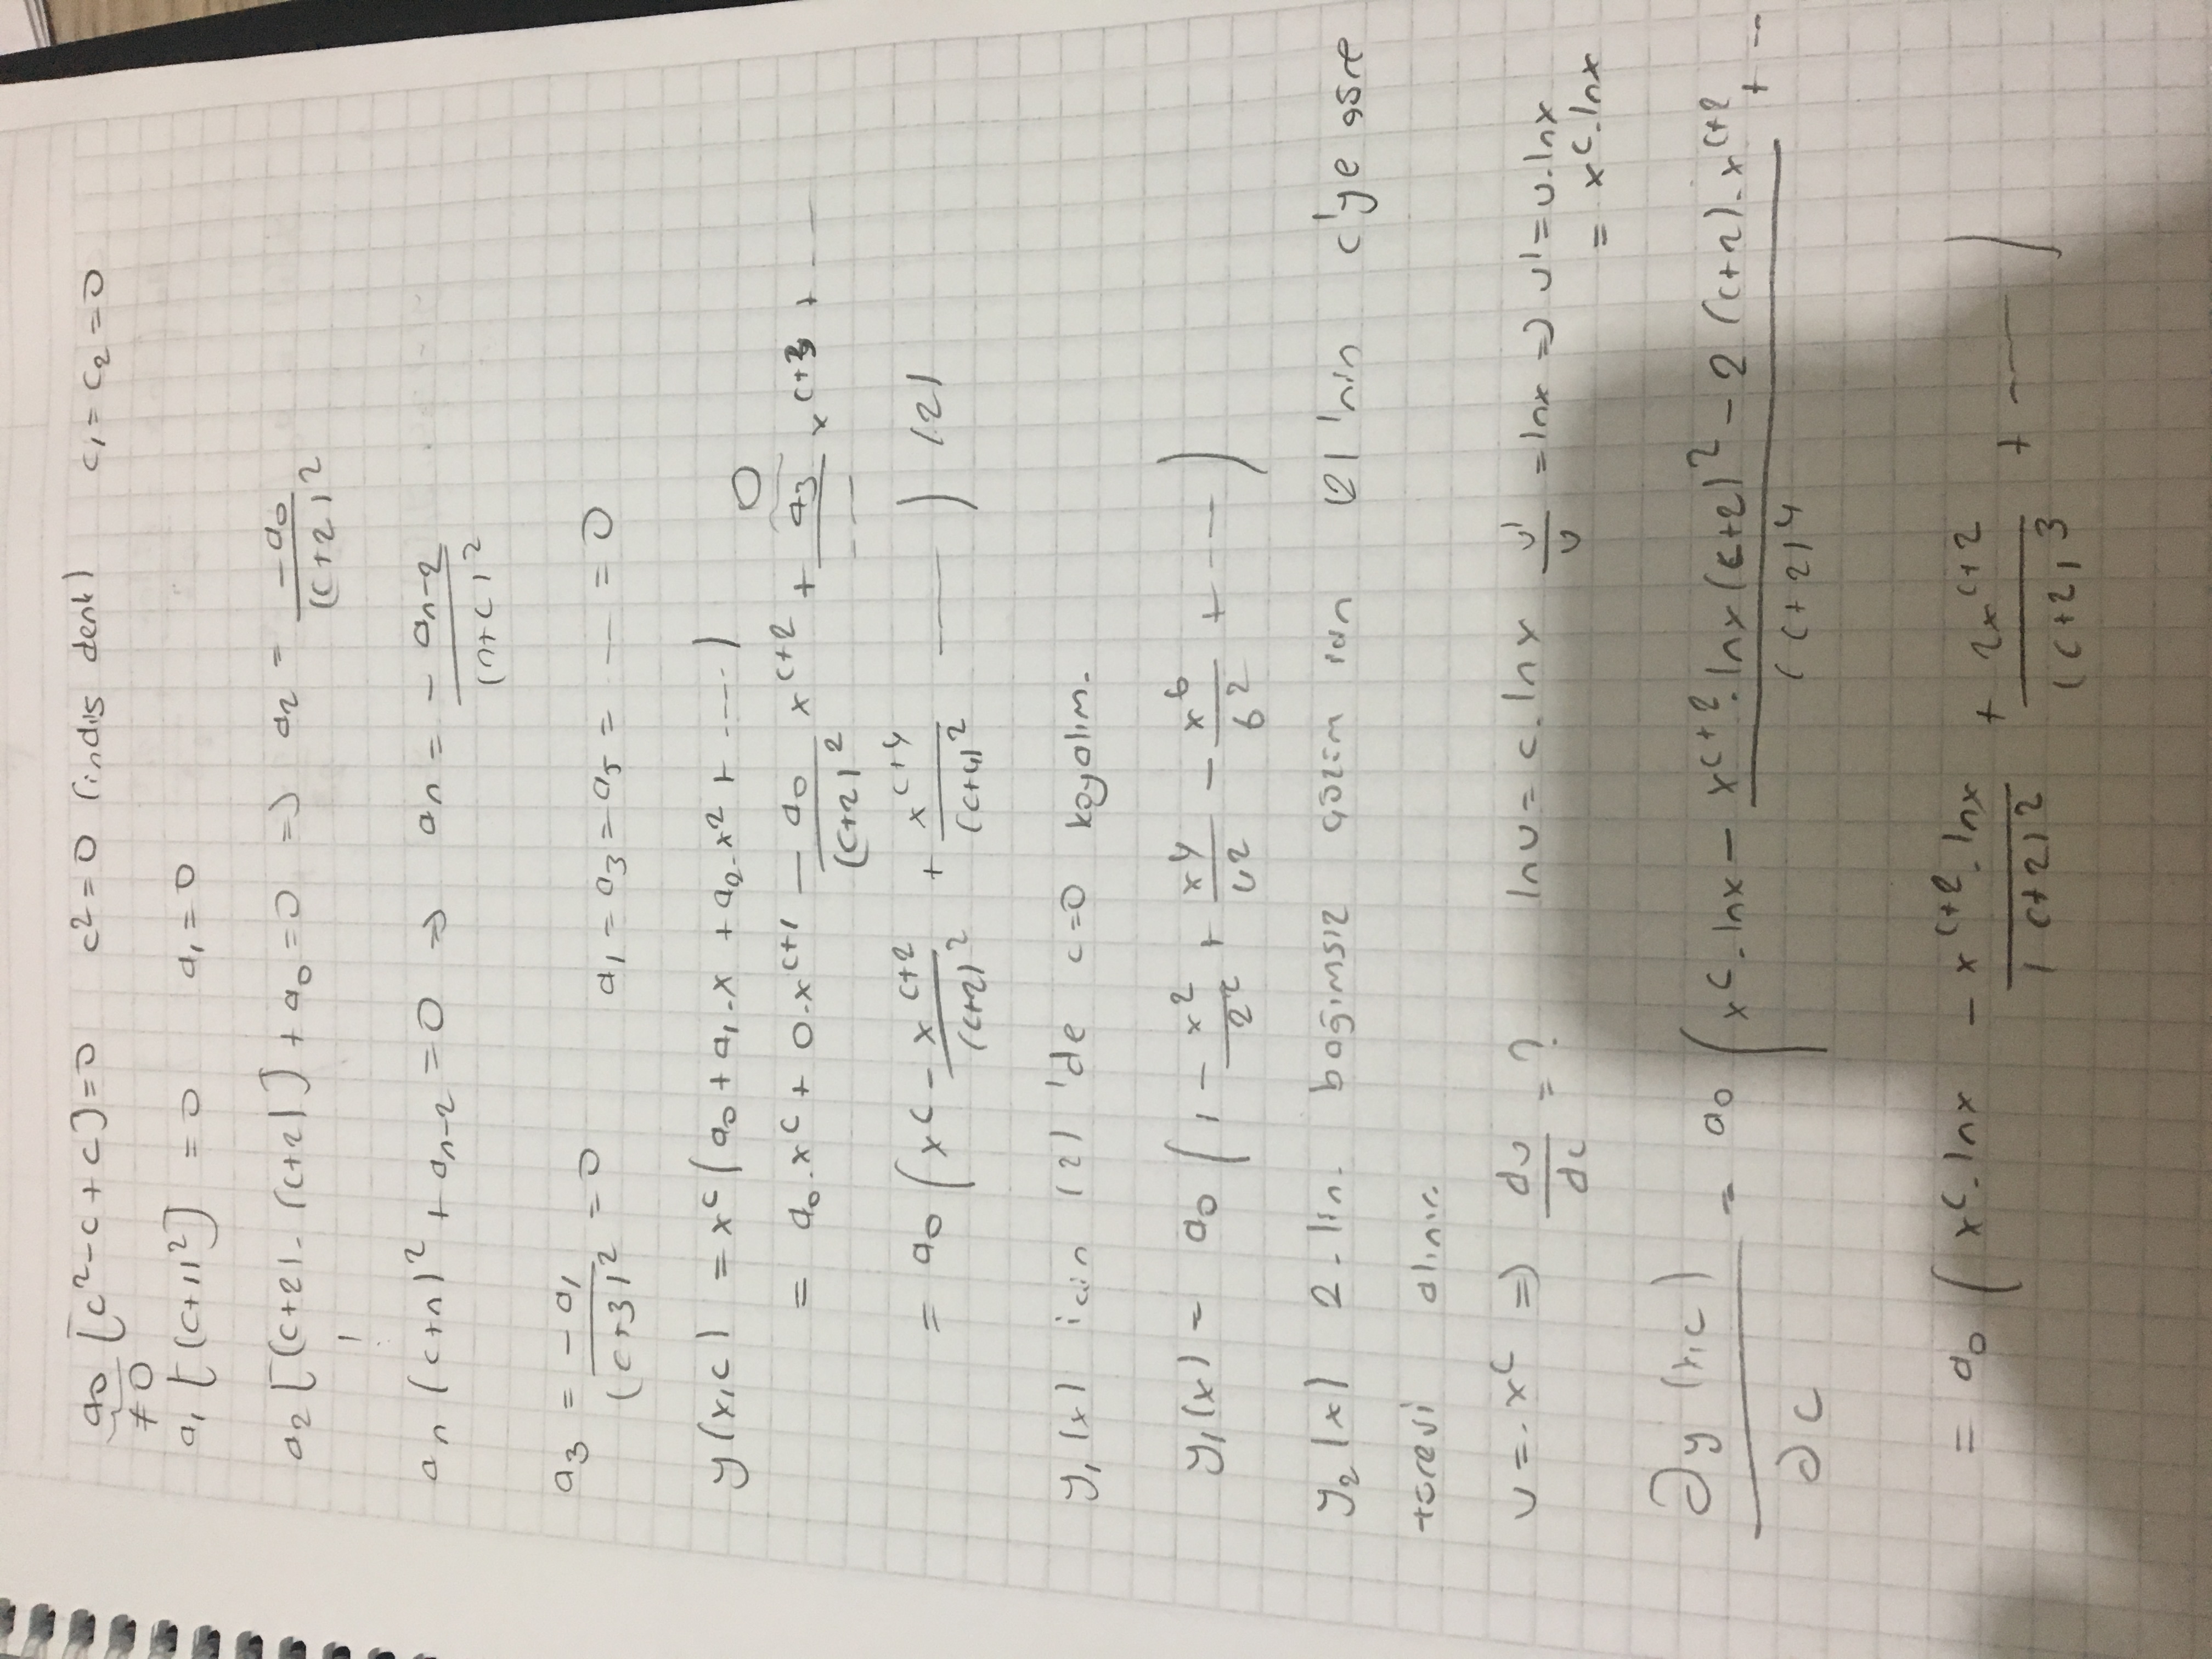 a₀ [c²-c+c]=0   c²=0 (indis denk)   c₁=c₂=0
≠0
a₁ [(c+1)²] =0   a₁=0
a₂ [(c+2).(c+2)]+a₀=0 => a₂ = -a₀/(c+2)²
aₙ (c+n)² + aₙ₋₂ =0 => aₙ = - aₙ₋₂/(n+c)²
a₃ = -a₁/(c+3)² =0   a₁=a₃=a₅= --- =0
y(x,c) = x^c (a₀+a₁.x+a₂.x²+ ----)
0
= a₀.x^c + 0.x^(c+1) - a₀/(c+2)² x^(c+2) + a₃/--- x^(c+3) + ---
= a₀ (x^c - x^(c+2)/(c+2)² + x^(c+4)/(c+4)² ----) (2)
y₁(x) için (2) 'de c=0 koyalım.
y₁(x) = a₀ (1 - x²/2² + x⁴/4² - x⁶/6² + ---)
y₂(x) 2. lin. bağımsız çözüm için (2)'nin c'ye göre
türevi alınır.
u=.x^c => du/dc = ?   lnu= c.lnx   u'/u = lnx => u'=u.lnx
= x^c.lnx
∂y(x,c)/∂c = a₀ (x^c.lnx - x^(c+2).lnx(c+2)² - 2(c+2).x^(c+2)/(c+2)⁴ + ---
= a₀ (x^c.lnx - x^(c+2).lnx/(c+2)² + 2x^(c+2)/(c+2)³ + ----)